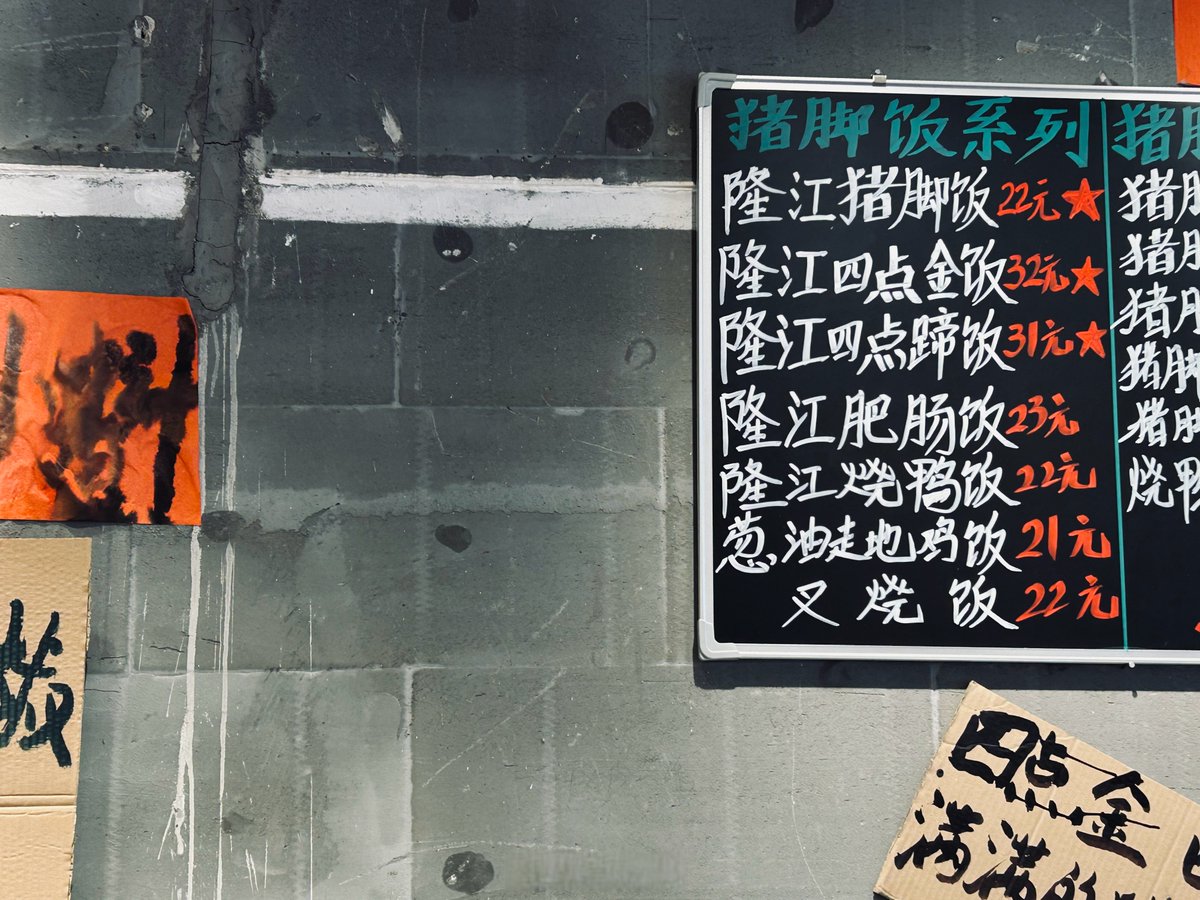 猪脚饭系列
隆江猪脚饭 22元★
隆江四点金饭 32元★
隆江四点蹄饭 31元★
隆江肥肠饭 23元
隆江烧鸭饭 22元
葱油走地鸡饭 21元
叉烧饭 22元
猪脚
猪脚
猪脚
猪
猪脚
猪脚
烧鸭
四点金
满满的